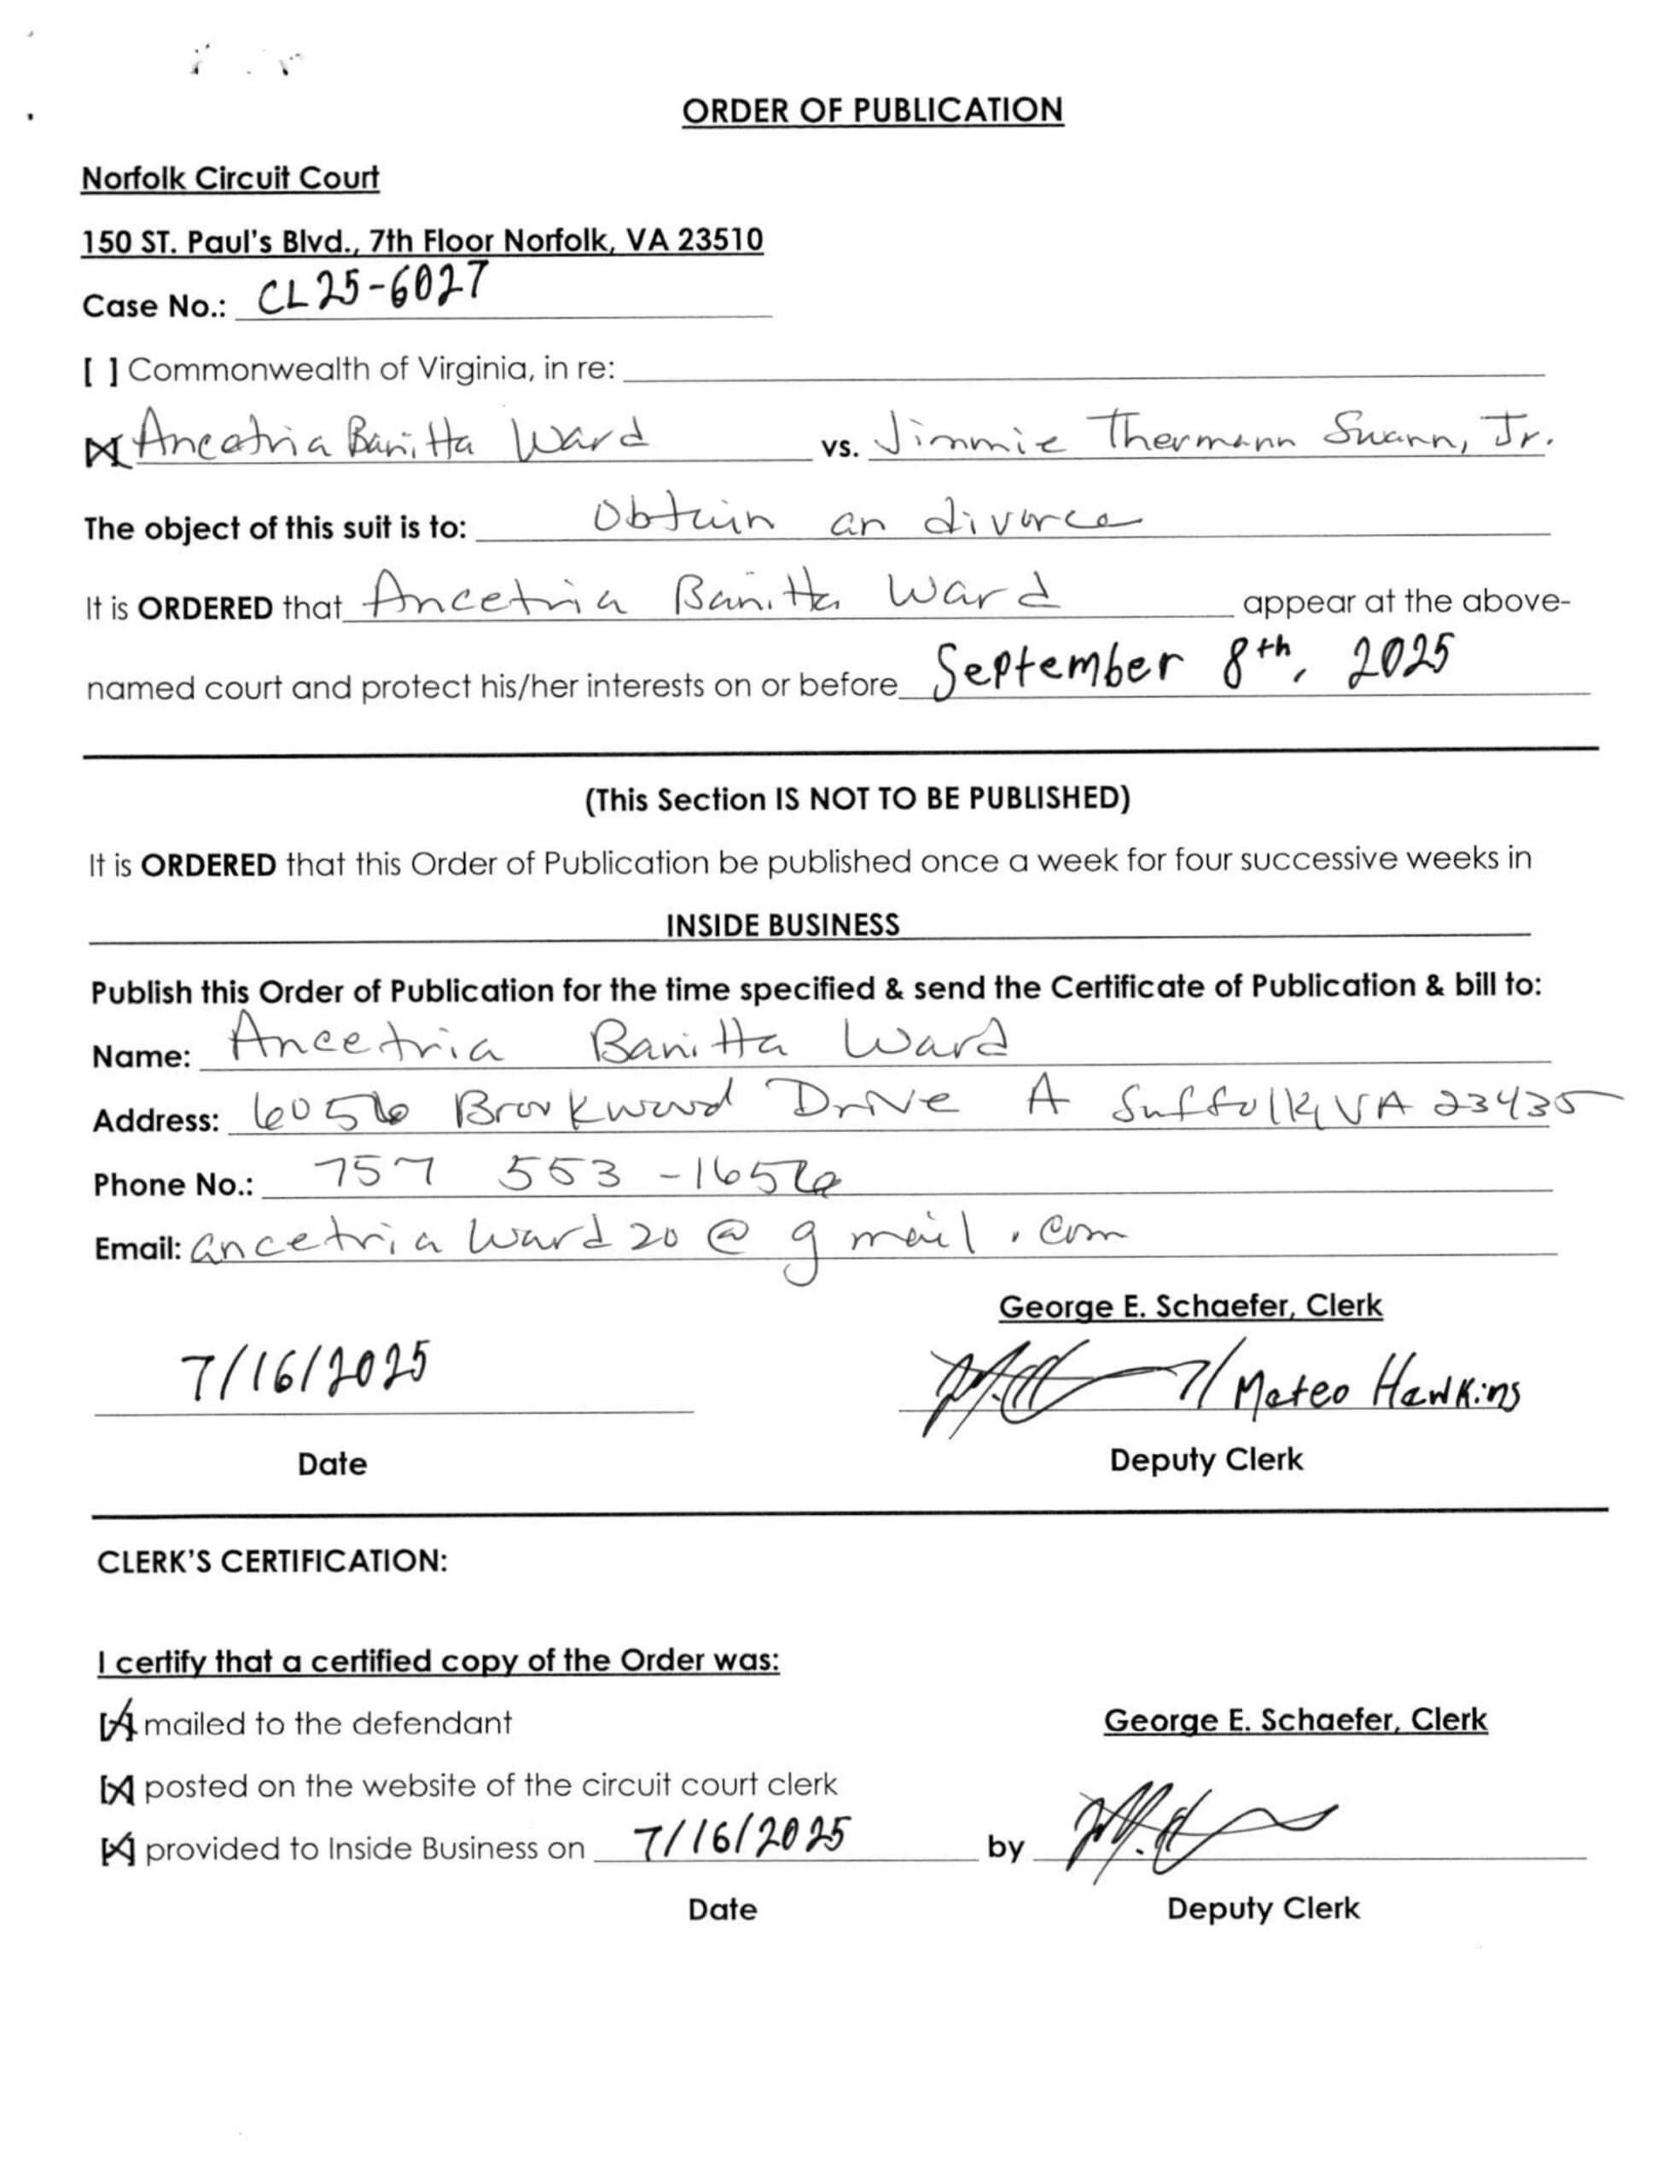 ORDER OF PUBLICATION
Norfolk Circuit Court
150 ST. Paul's Blvd., 7th Floor Norfolk, VA 23510
Case No.: CL25-6027
[ ] Commonwealth of Virginia, in re:
[X] Ancetria Banitta Ward vs. Jimmie Thermann Swann, Jr.
The object of this suit is to: Obtain an divorce
It is ORDERED that Ancetria Banitta Ward appear at the above-
named court and protect his/her interests on or before September 8th, 2025
(This Section IS NOT TO BE PUBLISHED)
It is ORDERED that this Order of Publication be published once a week for four successive weeks in
INSIDE BUSINESS
Publish this Order of Publication for the time specified & send the Certificate of Publication & bill to:
Name: Ancetria Banitta Ward
Address: 6056 Brookwood Drive A Suffolk, VA 23435
Phone No.: 757 553-1656
Email: ancetria ward 20 @ gmail.com
George E. Schaefer, Clerk
7/16/2025 / Mateo Hawkins
Date Deputy Clerk
CLERK'S CERTIFICATION:
I certify that a certified copy of the Order was:
[X] mailed to the defendant George E. Schaefer, Clerk
[X] posted on the website of the circuit court clerk
[X] provided to Inside Business on 7/16/2025 by
Date Deputy Clerk